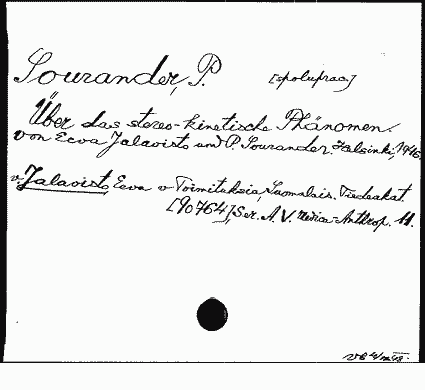 Sourander, P.
[spoluprac.]
Über das stereo-kinetische Phänomen.
Von Eeva Jalavisto und P. Sourander. Helsinki, 1946.
v. Jalavisto, Eeva v Toimituksia, Suomalais. Tiedeakat.
[90764], Ser. A. V. Medica-Anthrop. 11.